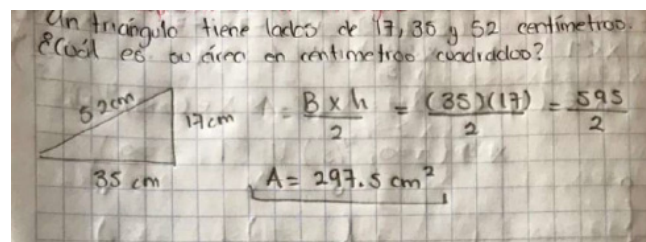 Un triángulo tiene lados de 17, 35 y 52 centímetros.
¿Cuál es su área en centímetros cuadrados?
52cm
17cm
A = B x h / 2 = (35)(17) / 2 = 595 / 2
35 cm
A = 297.5 cm²